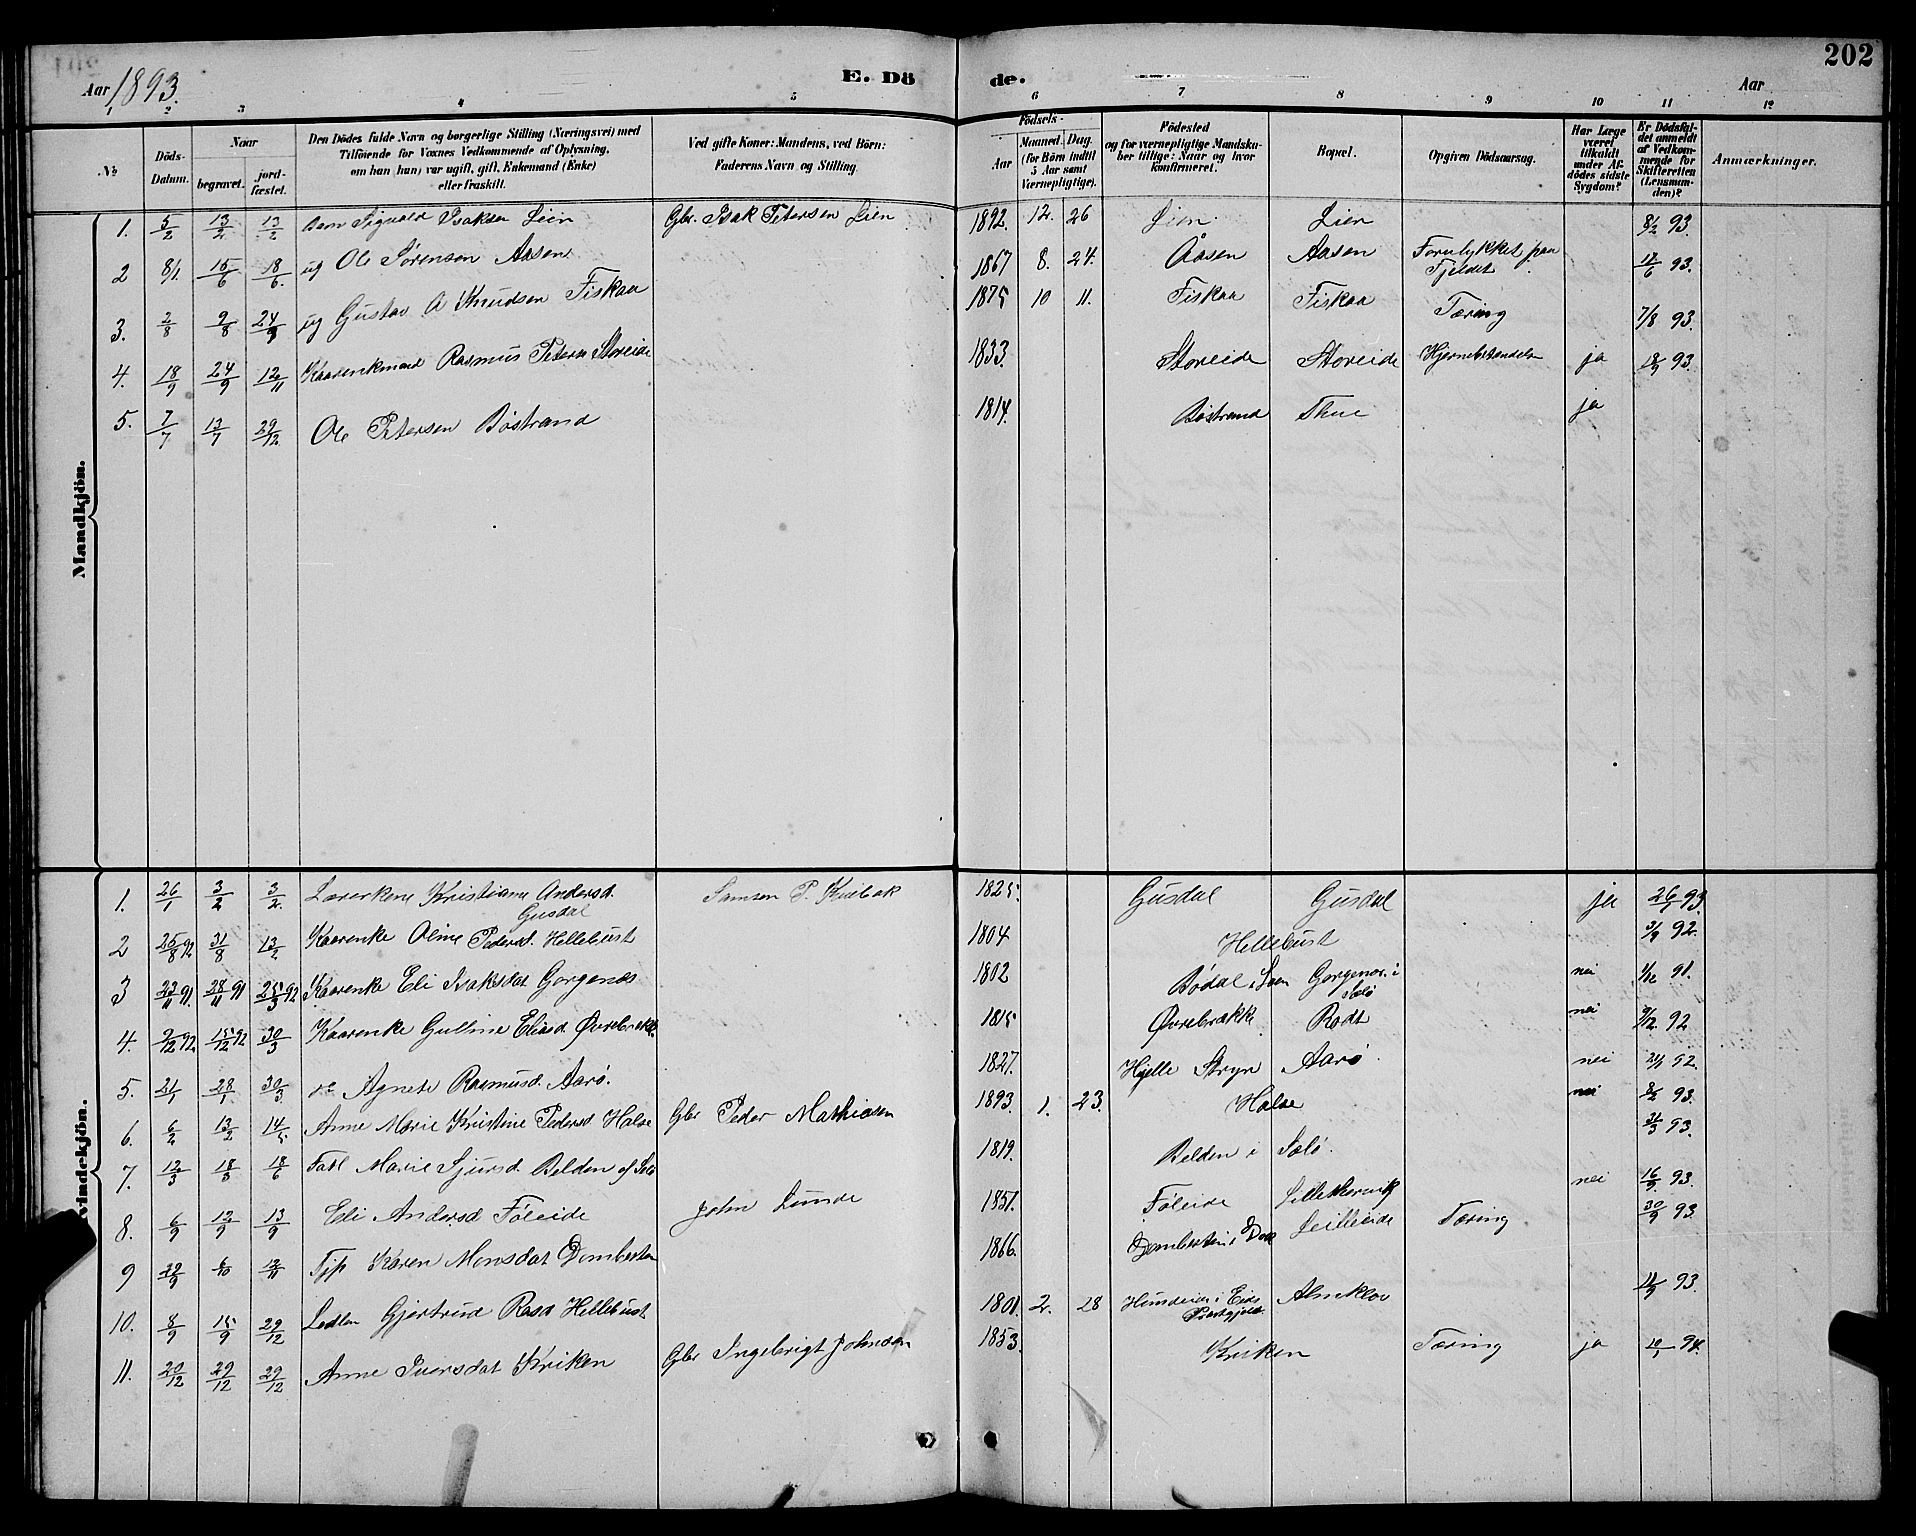 202
Aar 1893. E. Dö de. Aar
1 2 3 4 5 6 7 8 9 10 11 12
№
Döds-Datum.
Naar
begravet.
jord-fæstet.
Den Dödes fulde Navn og borgerlige Stilling (Næringsvei) med
Tilföiende for Voxnes Vedkommende af Oplysning,
om han (hun) var ugift, gift, Enkemand (Enke)
eller fraskilt.
Ved gifte Koner: Mandens, ved Börn:
Faderens Navn og Stilling.
Födsels-
Aar
Maaned. Dag.
(for Börn indtil
5 Aar samt
Værnepligtige).
Födested
og for værnepligtige Mandska-
ber tillige: Naar og hvor
konfirmeret.
Bopæl.
Opgiven Dödsaarsag.
Har Læge
været
tilkaldt
under Af-
dödes sidste
Sygdom?
Er Dödsfal-
det anmeldt
af Vedkom-
mende for
Skifteretten
(Lensman-
den)?
Anmærkninger.
Mandkjön.
1. 5/2 13/2 13/2 Barn Sigvald Isaksen Lien Gbr. Isak Petersen Lien 1892. 12. 26 Lien Lien 8/2 93.
2 8/1. 15/6 18/6. ug Ole Sørensen Aasen 1867 8. 24. Åasen Aasen Forulykket paa Fjeldet. 17/6 93.
3. 2/8 9/8 24/9 ug Gustav A Knudsen Fiskaa 1875 10 11. Fiskaa Fiskaa Tæring 7/8 93.
4. 18/9 24/9 12/11 Kaarenkmand Rasmus Peters Storeide 1833. Storeide Storeide Hjernebetændelse ja 18/9 93.
5. 7/7 13/7 29/12 Ole Petersen Bøstrand 1814. Bøstrand Thue ja
Kvindekjön.
1. 26/1 3/2 3/2. Kristiane Andersd. Gusdal Samson P. 1825. Gusdal Gusdal ja 26/1 93
2 25/8 92 31/8 13/2 Kaarenke Oline Pedersd. Hellebust 1804 Hellebust 3/9 92.
3 23/11 91. 28/11 91 25/3 92 Kaarenke Eli Isaksdat Gorgenæs 1802 Bødal i Loen Gorgenæs i Selø nei 1/12 91.
4. 2/12 92 15/12 92 30/3 Kaarenke Gulline Eliasd Øvrebrække 1815 Øvrebrække Rodt nei 9/12 92
5. 21/1 28/1 30/3 Agnete Rasmusd. Aarø. 1827. Hjelle Stryn Aarø. nei 24/1 92.
6. 6/2 13/2 14/5 Anne Marie Kristine Pedersd Halse Gbr Peder Mathiasen 1893. 1. 23. Halse nei 8/2 93.
7. 12/3 18/3 18/6 Fatl Marie Sjursd Belden af Selø 1819. Belden i Selø. 21/3 93.
8. 6/9 12/9 13/9 Eli Andersd Føleide John Lunde 1851. Føleide nei 16/9. 93.
9 29/9 6/10 12/11 Tjp Karen Monsdat Dombesten 1866. Dombesten i Dav Leilleide Tæring 30/9 93.
10. 8/9 15/9 29/12 Ledlem Gjertrud Rasd Hellebust 1801. 2. 28 Hundeide i Eids Præstgjeld Almklov 11/9 93.
11. 20/12 29/12 29/12 Anne Iversdat Kriken Gbr Ingebrigt Johnsen 1853. Kriken Tæring ja 10/1 94.